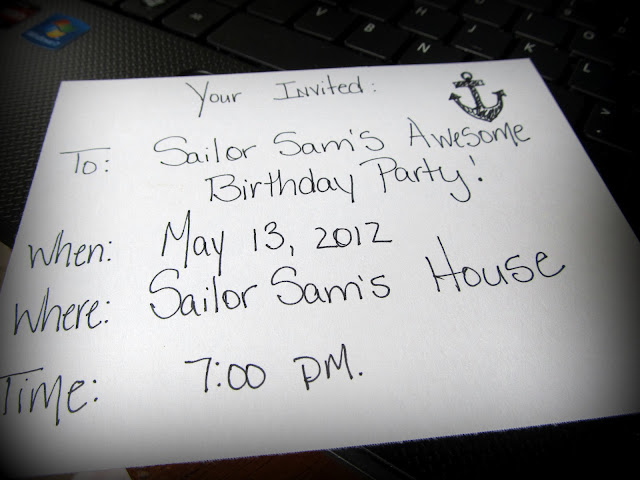 Your Invited:
To: Sailor Sam's Awesome
Birthday Party!
When: May 13, 2012
Where: Sailor Sam's House
Time: 7:00 PM.